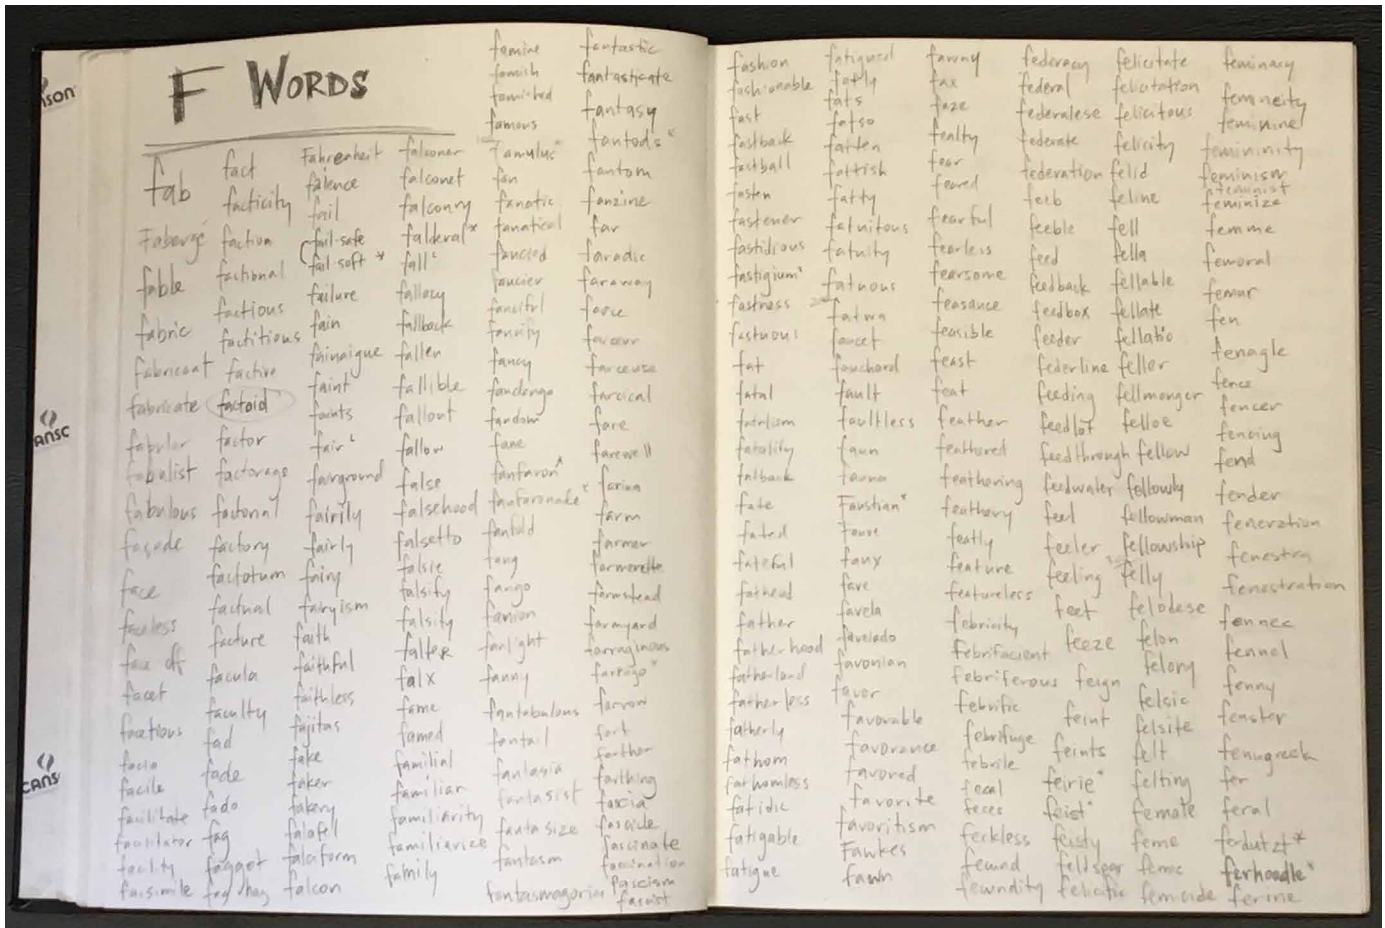 F WORDS
fab
Fabergé
fable
fabric
fabricant
fabricate
fabular
fabulist
fabulous
façade
face
faceless
face off
facet
facetious
facia
facile
facilitate
facilitator
facility
facsimile
fact
facticity
faction
factional
factious
factitious
factive
factoid
factor
factorage
factorial
factory
factotum
factual
facture
facula
faculty
fad
fade
fado
fag
faggot
fag hag
Fahrenheit
faience
fail
fail-safe
fail-soft *
failure
fain
fainaigue
faint
faints
fair
fairground
fairily
fairly
fairy
fairyism
faith
faithful
faithless
fajitas
fake
faker
fakery
falafell
falciform
falcon
falconer
falconet
falconry
falderal *
fall
fallacy
fallback
fallen
fallible
fallout
fallow
false
falsehood
falsetto
falsie
falsity
falsity
falter
falx
fame
famed
familial
familiar
familiarity
familiarize
family
famine
famish
famished
famous
famulus *
fan
fanatic
fanatical
fancied
fancier
fanciful
fancify
fancy
fandango
fandom
fane
fanfaron *
fanfaronade *
fanfold
fang
fango
fanion
fanlight
fanny
fantabulous
fantail
fantasia
fantasist
fantasize
fantasm
fantasmagoria
fantastic
fantasticate
fantasy
fantods *
fantom
fanzine
far
faradic
faraway
farce
farceur
farceuse
farcical
fare
farewell
farina
farm
farmer
farmerette
farmstead
farmyard
farraginous
farrago *
farrow
fart
farther
farthing
fascia
fascicle
fascinate
fascination
fascism
fascist
fashion
fashionable
fast
fastback
fastball
fasten
fastener
fastidious
fastigium *
fastness
fastuous
fat
fatal
fatalism
fatality
fatback
fate
fated
fateful
fathead
father
fatherhood
fatherland
fatherless
fatherly
fathom
fathomless
fatidic
fatigable
fatigue
fatigued
fatly
fats
fatso
fatten
fattish
fatty
fatuitous
fatuity
fatuous
fatwa
faucet
fauchard
fault
faultless
faun
fauna
Faustian *
fauve
faux
fave
favela
favelado
favonian
favor
favorable
favorance
favored
favorite
favoritism
Fawkes
fawn
fawny
fax
faze
fealty
fear
feared
fearful
fearless
fearsome
feasance
feasible
feast
feat
feather
feathered
feathering
feathery
featly
feature
featureless
febricity
febrifacient
febriferous
febrific
febrifuge
febrile
fecal
feces
feckless
fecund
fecundity
federacy
federal
federalese
federate
federation
feeb
feeble
feed
feedback
feedbox
feeder
federline
feeding
feedlot
feedthrough
feedwater
feel
feeler
feeling
feet
feeze
feign
feint
feints
feirie *
feist *
feisty
feldspar
felicific
felicitate
felicitation
felicitous
felicity
felid
feline
fell
fella
fellable
fellate
fellatio
feller
fellmonger
felloe
fellow
fellowly
fellowman
fellowship
felly
felodese
felon
felony
felsic
felsite
felt
felting
female
feme
femic
femicide
feminacy
femineity
feminine
femininity
feminism
feminist
feminize
femme
femoral
femur
fen
fenagle
fence
fencer
fencing
fend
fender
feneration
fenestra
fenestration
fennec
fennel
fenny
fenster
fenugreek
fer
feral
ferdutzt *
ferhoodle *
ferine